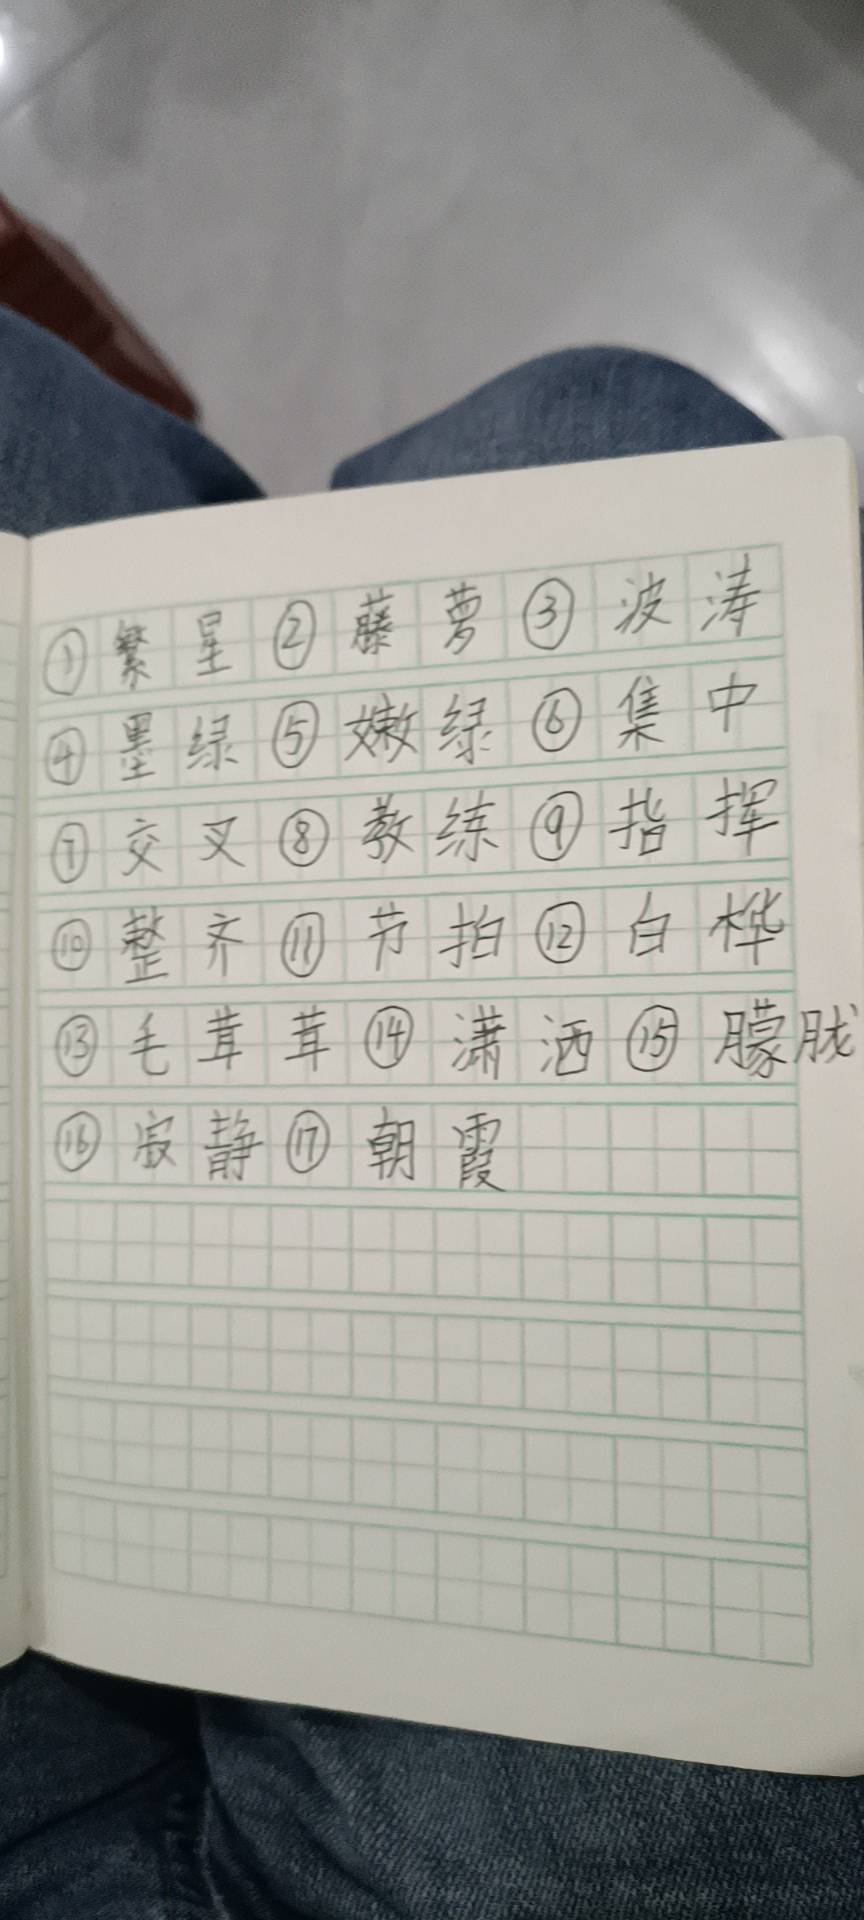 ①繁星②藤萝③波涛
④墨绿⑤嫩绿⑥集中
⑦交叉⑧教练⑨指挥
⑩整齐⑪节拍⑫白桦
⑬毛茸茸⑭潇洒⑮朦胧
⑯寂静⑰朝霞